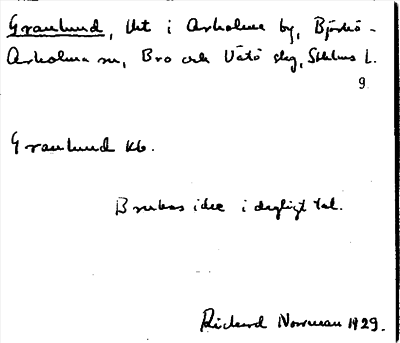 Granlund, lht i Arholma by, Björkö-
Arholma sn, Bro och Vätö skg, Sthlms l.
9.
Granlund kb.
Brukas icke i dagligt tal.
Rickard Norrman 1929.